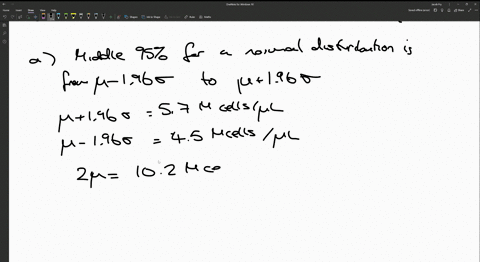 a) Middle 95% for a normal distribution is
from μ-1.96σ to μ+1.96σ
μ+1.96σ = 5.7 M cells/μL
μ-1.96σ = 4.5 Mcells/μL
2μ = 10.2 M ce